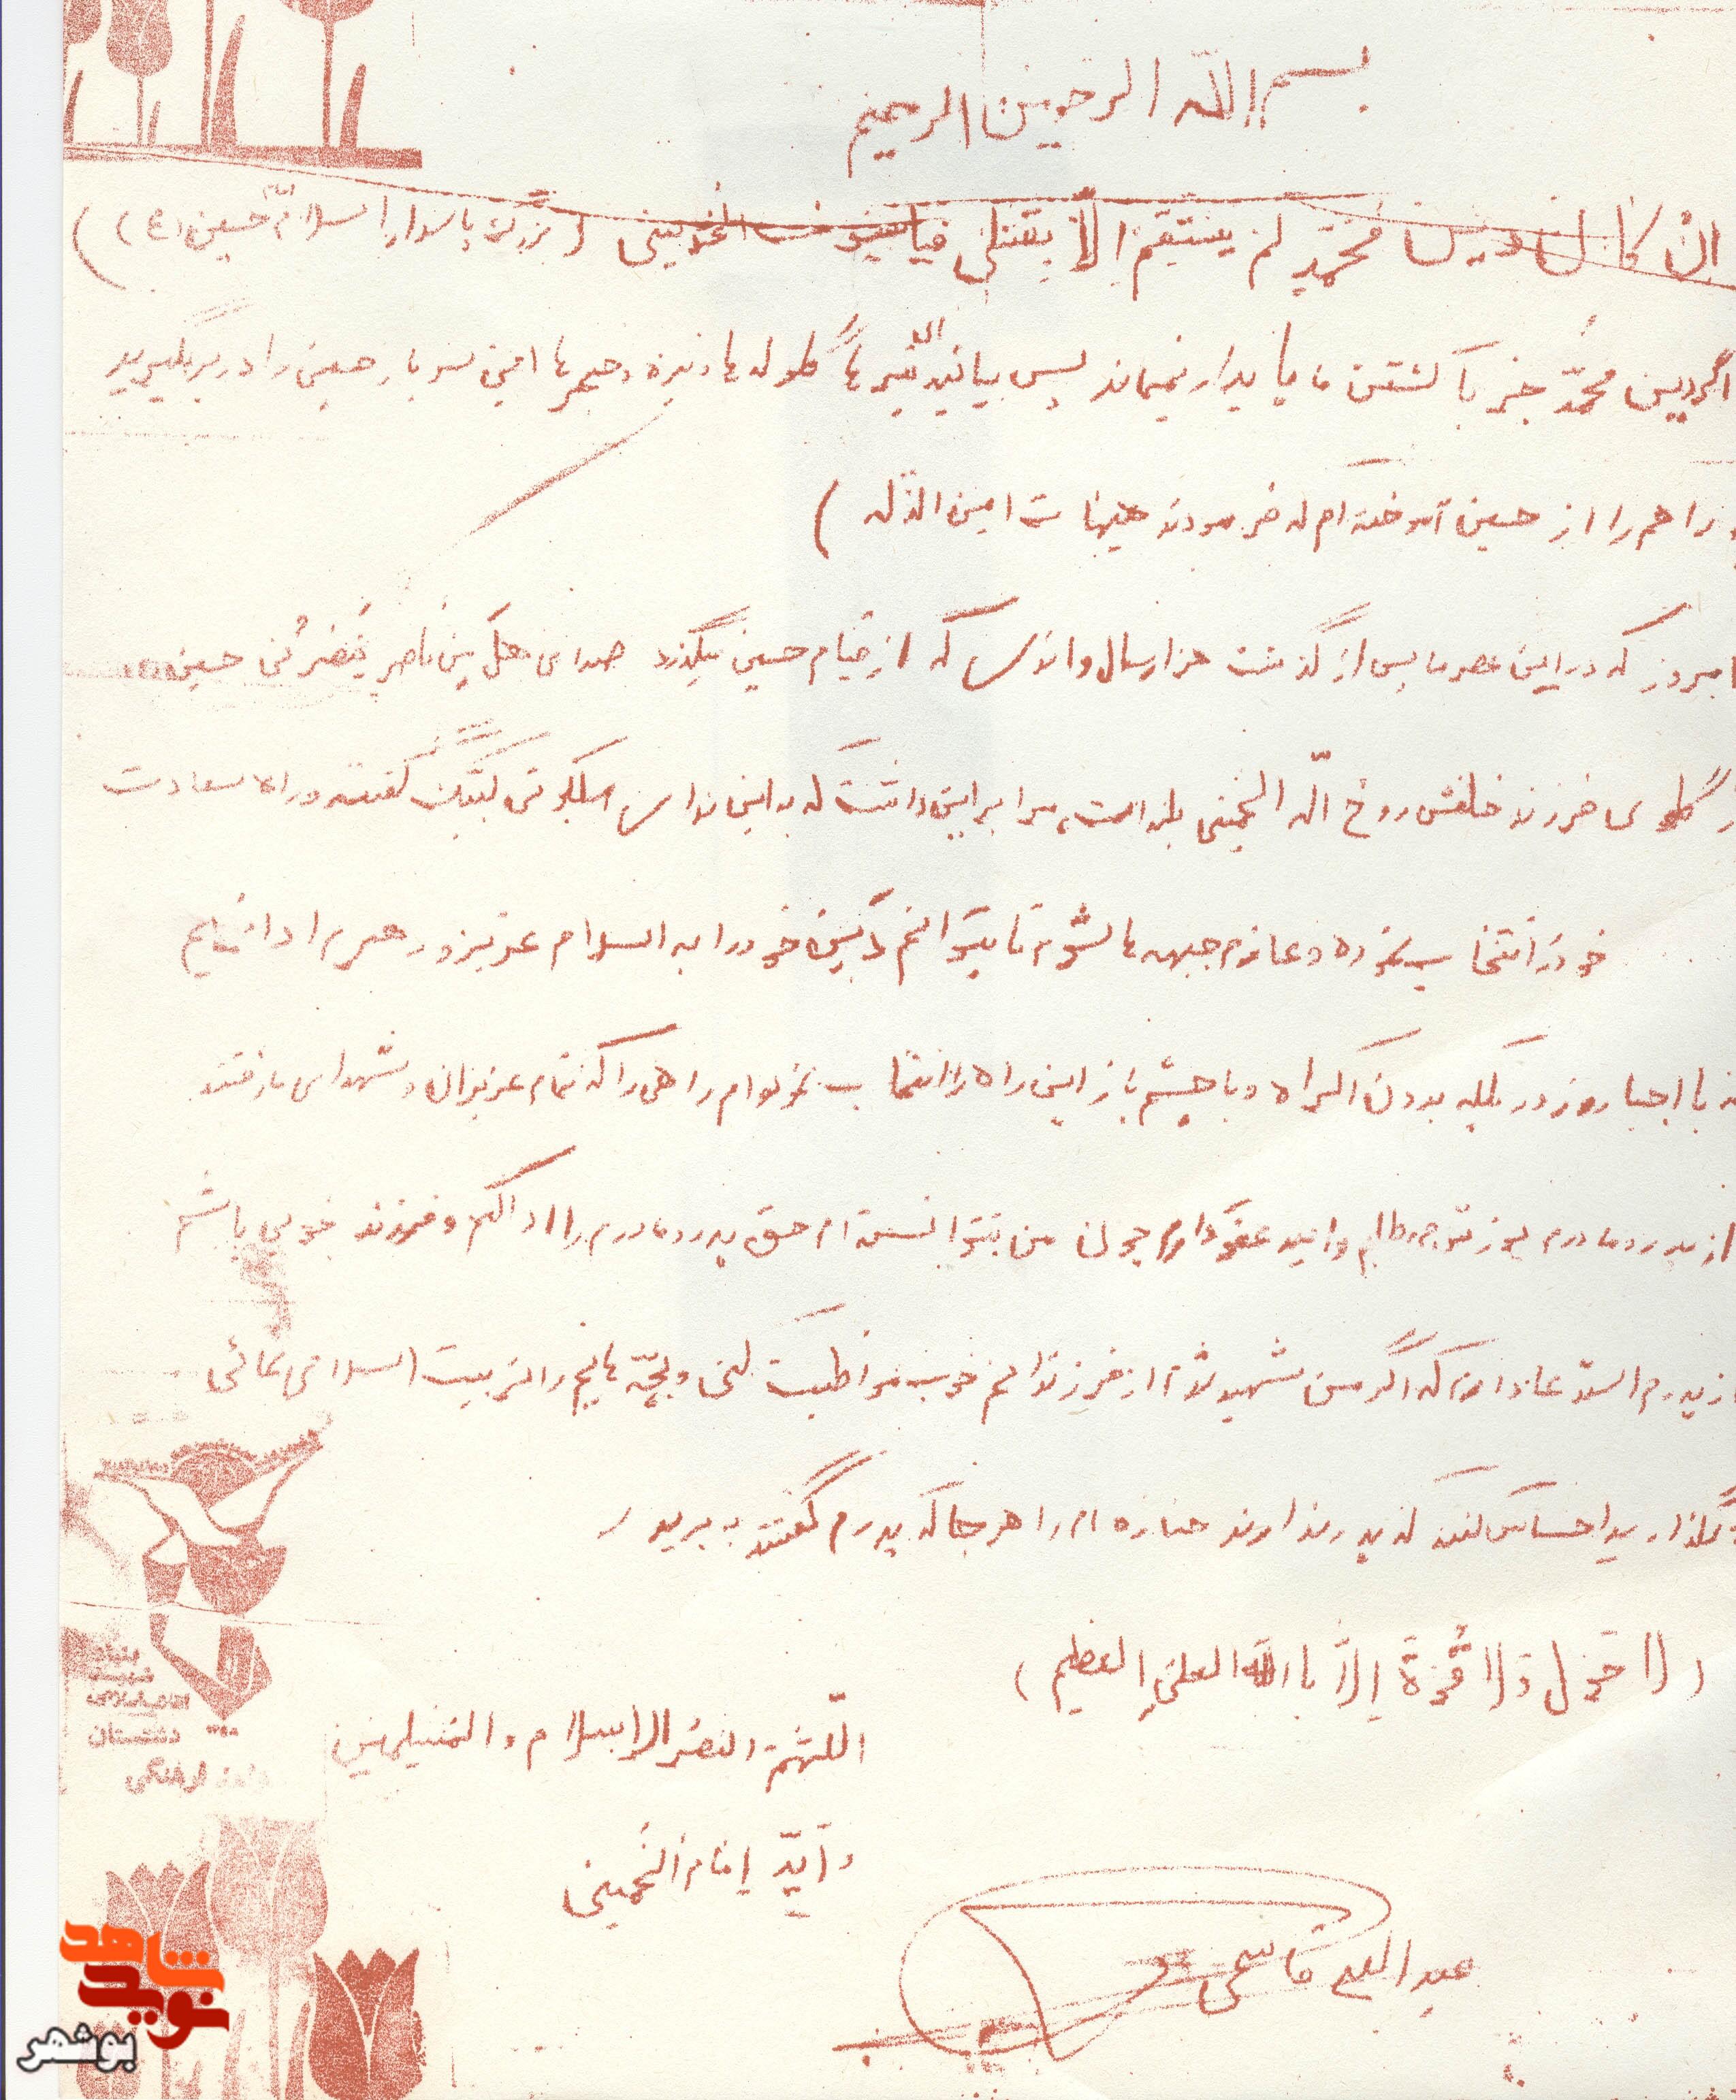 بسم الله الرحمن الرحیم
اِنْ کانَ دینُ مُحَمَّدٍ لَمْ یَسْتَقِمْ اِلّا بِقَتْلی فَیاسُیُوفُ خُذینی (بزرگ پاسدار اسلام امام حسین (ع))
اگر دین محمّد جز با کشتن ما پایدار نمیماند پس بیائید ای تیرها گلوله ها و نیزه و خنجرها این بار حسین را در بر بگیرید
راهم را از حسین آموخته ام که فرمودند هیهات امین الذله )
امروز که در این عصر ما پس از گذشت هزار سال و اندی که از قیام حسین میگذرد صدای هَل مِن ناصرٍ یَنصُرُنی حسین
گلوی فرزند خلفش روح الّه الخمینی بلند است، مرا بر این داشت که به این ندای ملکوتی لبّیک گفته و راه سعادت
خود را انتخاب نموده و عازم جبهه ها شوم تا بتوانم دَین خود را به اسلام عزیز و رهبرم ادا نمایم
نه با اجبار و زور بلکه بدون اکراه و با چشم باز این راه را انتخاب نموده ام راهی را که تمام عزیزان و شهدای ما رفتند
از پدر و مادرم نیز توجه طلبم و امید عفو دارم چون من نتوانسته ام حق پدر و مادرم را ادا کنم و فرزند خوبی باشم
از پدرم استدعا دارم که اگر من شهید شدم از فرزندانم خوب مواظبت کنی و بچّه هایم را تربیت اسلامی نمائی
نگذارید احساس کنند که پدر ندارند جنازه ام را هر جا که پدرم گفتند به برید
(لا حَول وَلا قُوَّةَ اِلاّ با الله العلیِ العظیم)
اللّهُمَّ انصُر الاسلام والمُسلِمین
و اَیِّد اِمام الخُمینی
عبدالله قاسمی
بنیاد
شهید
انقلاب اسلامی
دشتستان
واحد فرهنگی
نوید شاهد
بوشهر